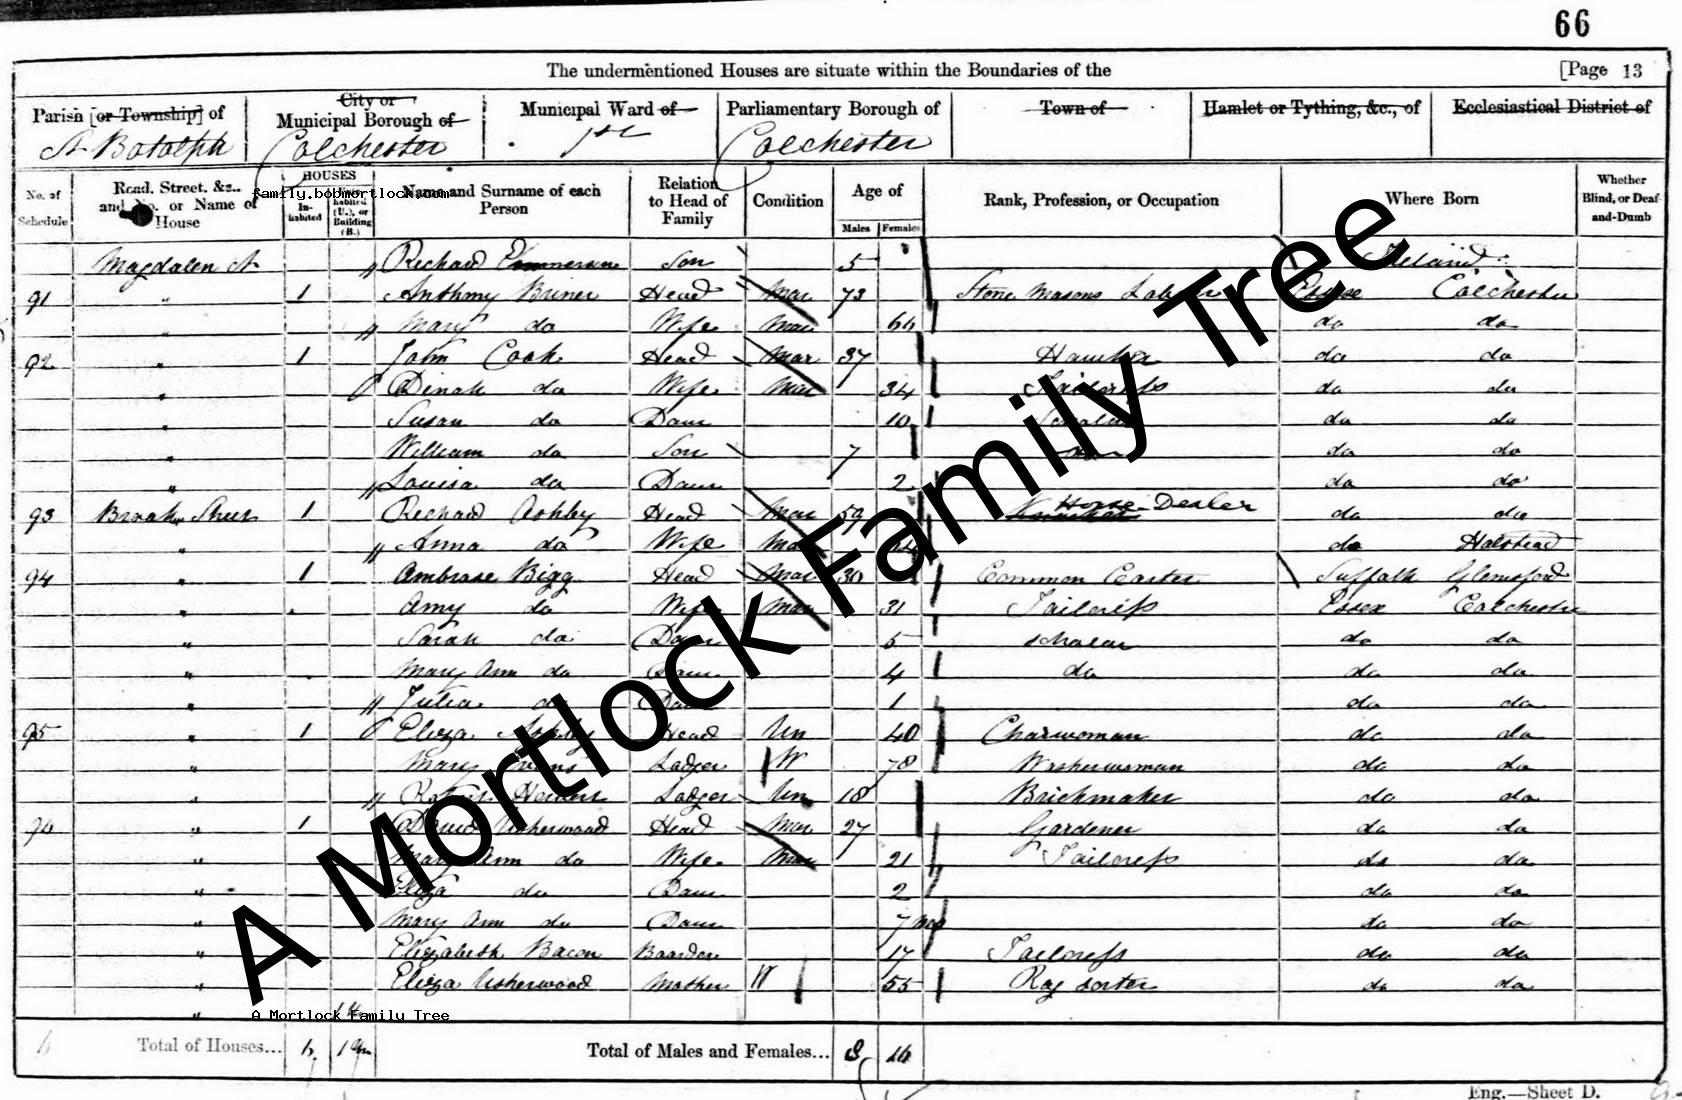 66
The undermentioned Houses are situate within the Boundaries of the [Page 13
Parish [or Township] of City or Municipal Borough of Municipal Ward of Parliamentary Borough of Town of Hamlet or Tything, &c., of Ecclesiastical District of
St Botolph Colchester 1st Colchester
No. of Schedule Road, Street, &c., and No. or Name of House HOUSES Inhabited Uninhabited (U.), or Building (B.) Name and Surname of each Person Relation to Head of Family Condition Age of Males Females Rank, Profession, or Occupation Where Born Whether Blind, or Deaf-and-Dumb
family.bobmortlock.com
Magdalen St Richard Son 5 Ireland
91 " 1 Anthony Bruner Head Mar 73 Stone Masons Essex Colchester
" Mary do Wife Mar 64 do do
92 " 1 John Cook Head Mar 37 do do
" Dinah do Wife Mar 34 Tailoress do do
" Susan do Daur 10 do do
" William do Son 7 do do
" Louisa do Daur 2 do do
93 Brook Street 1 Richard Ashley Head Mar 59 Horse Dealer do do
" Anna do Wife Mar do Halstead
94 " 1 Ambrose Bigg Head Mar 30 Common Carter Suffolk Glemsford
" Amy do Wife Mar 31 Tailoress Essex Colchester
" Sarah do Daur 5 Scholar do do
" Mary Ann do Daur 4 do do do
" Julia do Daur 1 do do
95 " 1 Eliza Ashley Head Un 40 Charwoman do do
" Mary Lodger W 78 Washerwoman do do
" Lodger Un 18 Brickmaker do do
96 " 1 David Usherwood Head Mar 27 Gardener do do
" Mary Ann do Wife Mar 21 Tailoress do do
" Eliza do Daur 2 do do
" Mary Ann do Daur 7 mo do do
" Elizabeth Bacon Boarder 17 Tailoress do do
" Eliza Usherwood Mother W 55 Rag Sorter do do
A Mortlock Family Tree
A Mortlock Family Tree
Total of Houses... 6 Total of Males and Females... 8 16
Eng.—Sheet D.